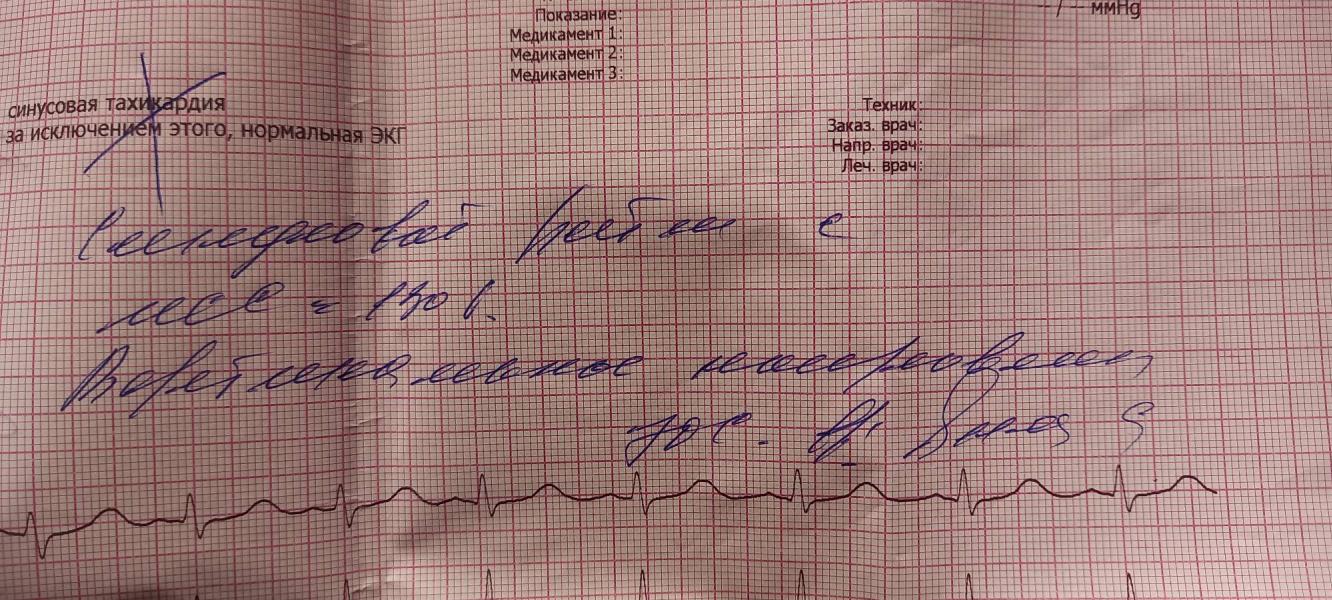 Показание:
-- / -- ммHg
Медикамент 1:
Медикамент 2:
Медикамент 3:
синусовая тахикардия
за исключением этого, нормальная ЭКГ
Техник:
Заказ. врач:
Напр. врач:
Леч. врач:
Синусовый ритм с
ЧСС = 130
Вертикальное